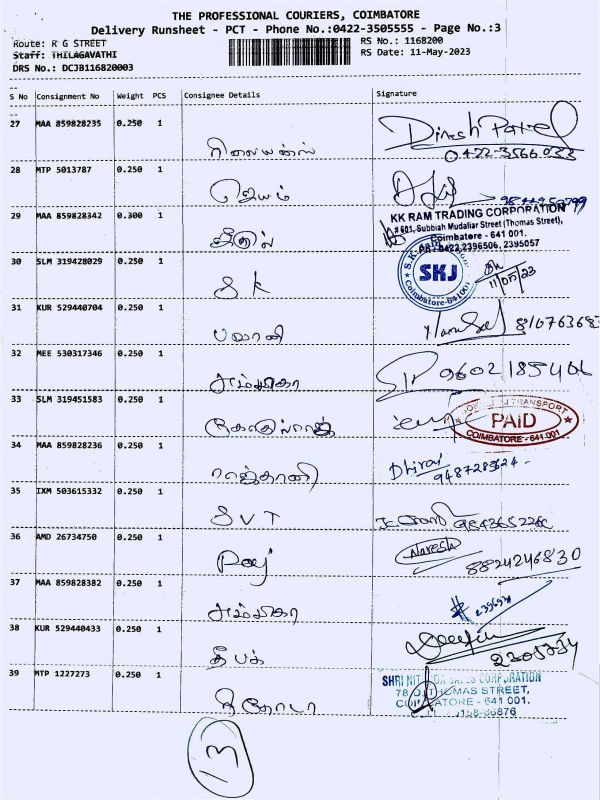 THE PROFESSIONAL COURIERS, COIMBATORE
Delivery Runsheet - PCT - Phone No.:0422-3505555 - Page No.:3
Route: R G STREET
RS No.: 1168200
Staff: THILAGAVATHI
RS Date: 11-May-2023
DRS No.: DCJB116820003
S No Consignment No Weight PCS Consignee Details Signature
27 MAA 859828235 0.250 1 Dinesh Patel
ரிலையன்ஸ் 0422-3566033
28 MTP 5013787 0.250 1
ஜெயம்
29 MAA 859828342 0.300 1 KK RAM TRADING CORPORATION
# 601, Subbiah Mudaliar Street (Thomas Street),
Coimbatore - 641 001.
Ph : 0422 2396506, 2395057
30 SLM 319428029 0.250 1 SKJ
Coimbatore-641001
11/05/23
SK
31 KUR 529440704 0.250 1
பவானி
32 MEE 530317346 0.250 1 9602185406
அம்பிகா
33 SLM 319451583 0.250 1 TRANSPORT
PAID
COIMBATORE - 641 001
34 MAA 859828236 0.250 1 Dhiraj
ராஜ்தானி
35 IXM 503615332 0.250 1
SVT
36 AMD 26734750 0.250 1 Naresh
Raj 8824246830
37 MAA 859828382 0.250 1
அம்பிகா
38 KUR 529440433 0.250 1
தீபக்
39 MTP 1227273 0.250 1 SHRI
78 THOMAS STREET,
641 001.
13